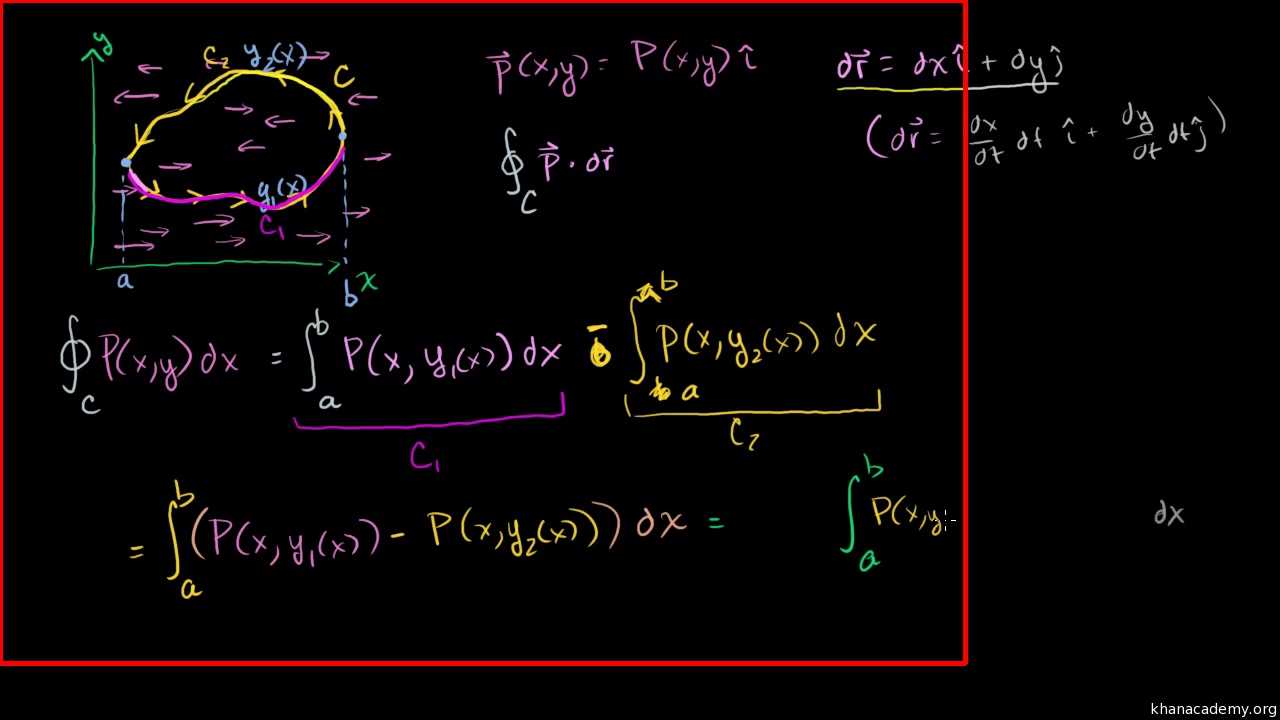 y
C₂ y₂(x)
C
y₁(x)
C₁
a
b
x
p⃗(x,y) = P(x,y) î
dr⃗ = dx î + dy ĵ
(dr⃗ = dx/dt dt î + dy/dt dt ĵ)
∮_C p⃗ · dr⃗
∮_C P(x,y) dx = ∫_a^b P(x, y₁(x)) dx - ∫_a^b P(x, y₂(x)) dx
C₁
C₂
= ∫_a^b (P(x, y₁(x)) - P(x, y₂(x))) dx = ∫_a^b P(x,y dx
khanacademy.org